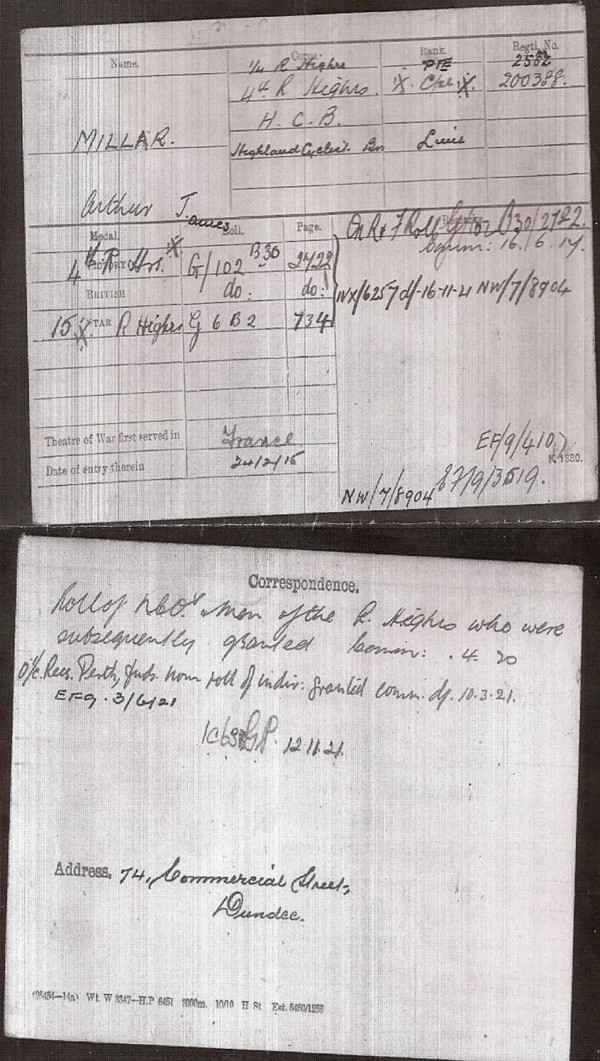 Name. Corps. Rank. Regtl. No.
1/4 R Highrs PTE 2582
4th R Highrs. X. Cpl. X. 200388.
H. C. B.
MILLAR.
Highland Cyclist Bn Lieut
Arthur James
Medal. Roll. Page. On R & F Roll G/102 B30/2722.
4th R Hrs. X VICTORY G/102 B30 2722 Comm: 16.6.17.
BRITISH do: do: NX/6257 df-16-11-21 NW/7/8904
15 X STAR R Highrs G 6 B 2 734
Theatre of War first served in France
Date of entry therein 24/2/15
EF/9/4107
K.1380.
NW/7/8904 EF/9/3519.
Correspondence.
Roll of N.C.O.s Men of the R. Highrs who were
subsequently granted Comm: .4. 20
O/c. Recs. Perth, fwds. nom roll of indiv: granted comm. df. 10.3.21.
EF9. 3/6/21
12.11.21.
Address. 74, Commercial Street,
Dundee.
Wt. W 5347—H.P 6451 1000m. 10/19 H St Est. 5480/1256